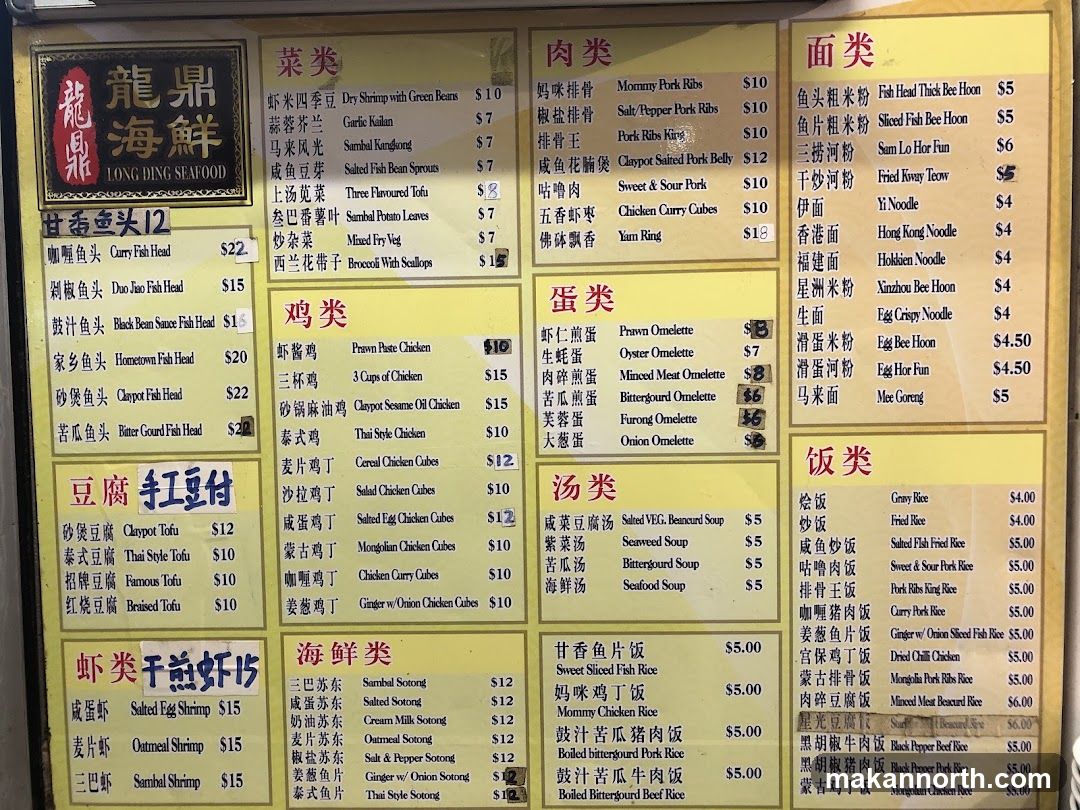 龍鼎
龍鼎
海鮮
LONG DING SEAFOOD
甘香鱼头12
咖喱鱼头 Curry Fish Head $22
剁椒鱼头 Duo Jiao Fish Head $15
鼓汁鱼头 Black Bean Sauce Fish Head $16
家乡鱼头 Hometown Fish Head $20
砂煲鱼头 Claypot Fish Head $22
苦瓜鱼头 Bitter Gourd Fish Head $22
豆腐 手工豆付
砂煲豆腐 Claypot Tofu $12
泰式豆腐 Thai Style Tofu $10
招牌豆腐 Famous Tofu $10
红烧豆腐 Braised Tofu $10
虾类 干煎虾15
咸蛋虾 Salted Egg Shrimp $15
麦片虾 Oatmeal Shrimp $15
三巴虾 Sambal Shrimp $15
菜类
虾米四季豆 Dry Shrimp with Green Beans $10
蒜蓉芥兰 Garlic Kailan $7
马来风光 Sambal Kangkong $7
咸鱼豆芽 Salted Fish Bean Sprouts $7
上汤苋菜 Three Flavoured Tofu $8
叁巴番薯叶 Sambal Potato Leaves $7
炒杂菜 Mixed Fry Veg $7
西兰花带子 Broccoli With Scallops $15
鸡类
虾酱鸡 Prawn Paste Chicken $10
三杯鸡 3 Cups of Chicken $15
砂锅麻油鸡 Claypot Sesame Oil Chicken $15
泰式鸡 Thai Style Chicken $10
麦片鸡丁 Cereal Chicken Cubes $12
沙拉鸡丁 Salad Chicken Cubes $10
咸蛋鸡丁 Salted Egg Chicken Cubes $12
蒙古鸡丁 Mongolian Chicken Cubes $10
咖喱鸡丁 Chicken Curry Cubes $10
姜葱鸡丁 Ginger w/Onion Chicken Cubes $10
海鲜类
三巴苏东 Sambal Sotong $12
咸蛋苏东 Salted Sotong $12
奶油苏东 Cream Milk Sotong $12
麦片苏东 Oatmeal Sotong $12
椒盐苏东 Salt & Pepper Sotong $12
姜葱鱼片 Ginger w/ Onion Sotong $12
泰式鱼片 Thai Style Sotong $12
肉类
妈咪排骨 Mommy Pork Ribs $10
椒盐排骨 Salt/Pepper Pork Ribs $10
排骨王 Pork Ribs King $10
咸鱼花腩煲 Claypot Saited Pork Belly $12
咕噜肉 Sweet & Sour Pork $10
五香虾枣 Chicken Curry Cubes $10
佛砵飘香 Yam Ring $18
蛋类
虾仁煎蛋 Prawn Omelette $8
生蚝蛋 Oyster Omelette $7
肉碎煎蛋 Minced Meat Omelette $8
苦瓜煎蛋 Bittergourd Omelette $6
芙蓉蛋 Furong Omelette $6
大葱蛋 Onion Omelette $6
汤类
咸菜豆腐汤 Salted VEG. Beancurd Soup $5
紫菜汤 Seaweed Soup $5
苦瓜汤 Bittergourd Soup $5
海鲜汤 Seafood Soup $5
甘香鱼片饭 $5.00
Sweet Sliced Fish Rice
妈咪鸡丁饭 $5.00
Mommy Chicken Rice
鼓汁苦瓜猪肉饭 $5.00
Boiled bittergourd Pork Rice
鼓汁苦瓜牛肉饭 $5.00
Boiled Bittergourd Beef Rice
面类
鱼头粗米粉 Fish Head Thick Bee Hoon $5
鱼片粗米粉 Sliced Fish Bee Hoon $5
三捞河粉 Sam Lo Hor Fun $6
干炒河粉 Fried Kway Teow $5
伊面 Yi Noodle $4
香港面 Hong Kong Noodle $4
福建面 Hokkien Noodle $4
星洲米粉 Xinzhou Bee Hoon $4
生面 Egg Crispy Noodle $4
滑蛋米粉 Egg Bee Hoon $4.50
滑蛋河粉 Egg Hor Fun $4.50
马来面 Mee Goreng $5
饭类
烩饭 Gravy Rice $4.00
炒饭 Fried Rice $4.00
咸鱼炒饭 Salted FIsh Fried Rice $5.00
咕噜肉饭 Sweet & Sour Pork Rice $5.00
排骨王饭 Pork Ribs King Rice $5.00
咖喱猪肉饭 Curry Pork Rice $5.00
姜葱鱼片饭 Ginger w/ Onion Sliced Fish Rice $5.00
宫保鸡丁饭 Dried Chilli Chicken $5.00
蒙古排骨饭 Mongolia Pork Ribs Rice $5.00
肉碎豆腐饭 Minced Meat Beacurd Rice $6.00
星光豆腐饭 Beacurd Rice $6.00
黑胡椒牛肉饭 Black Pepper Beef Rice $5.00
黑胡椒猪肉饭 Black Pepper Pork Rice $5.00
蒙古 Mongolian Chicken Rice $5.00
makannorth.com